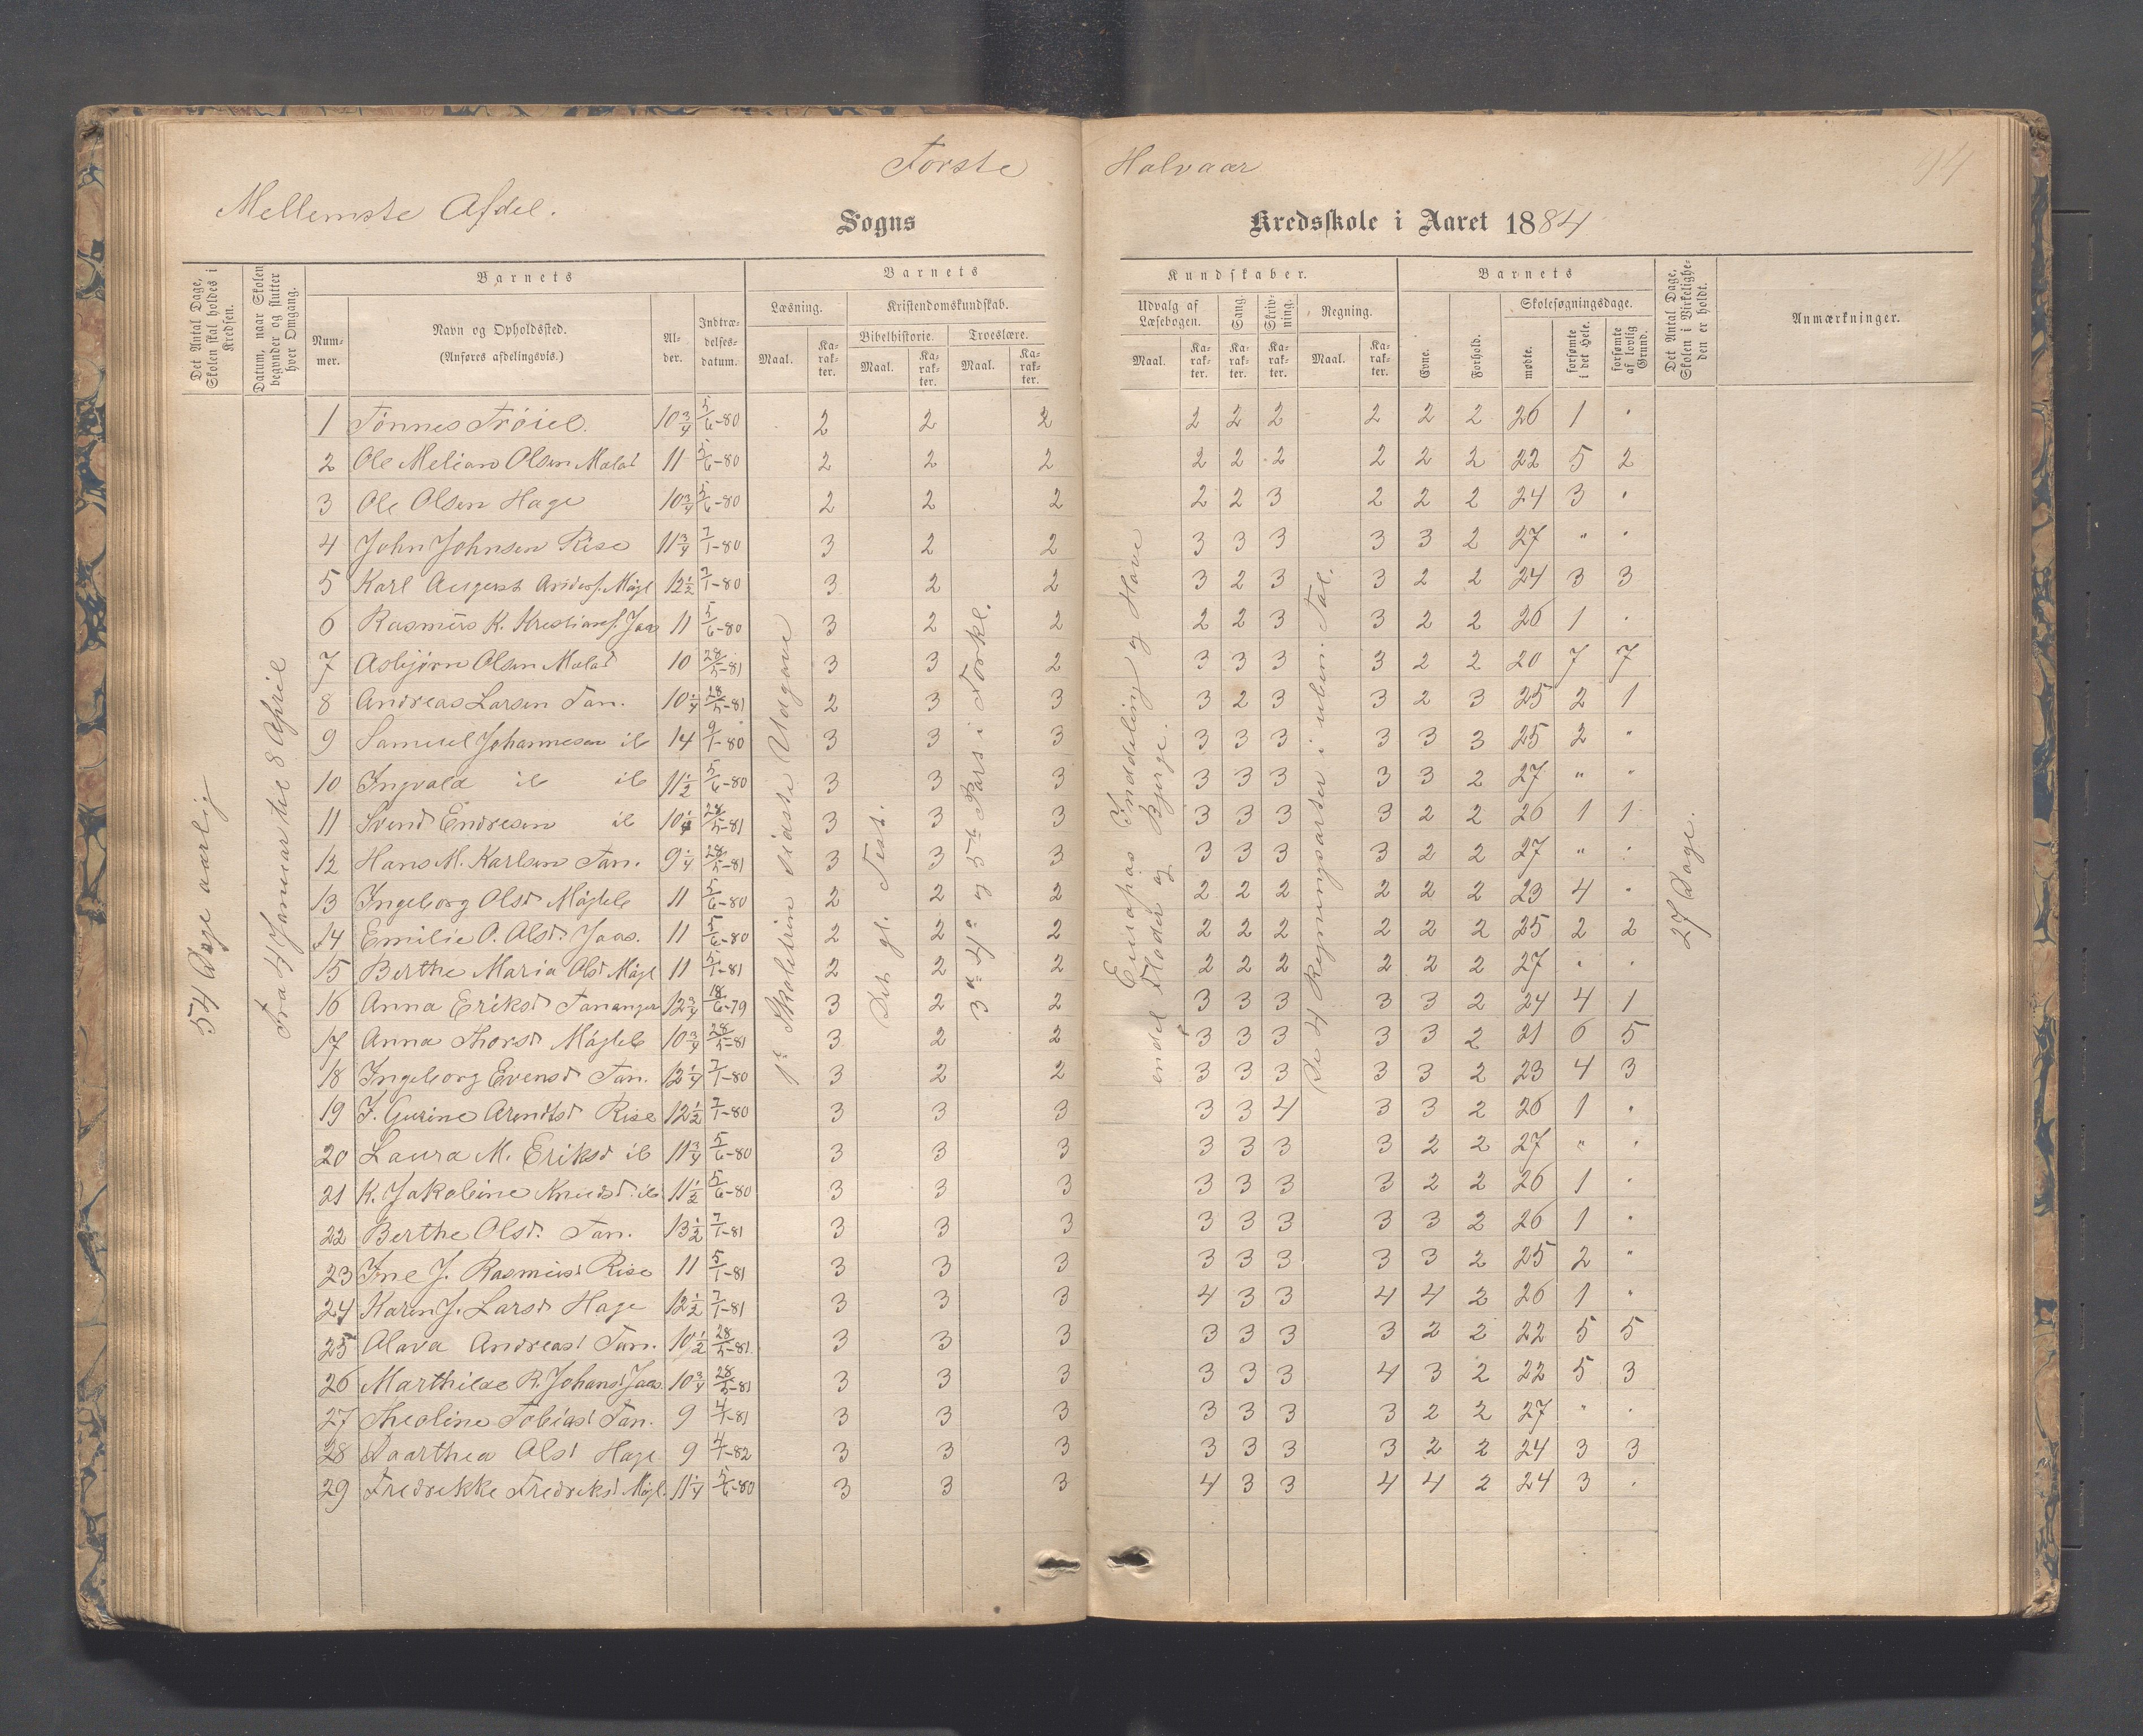 Første Halvaar
94
Mellemste Afdel.
Sogns Kredsskole i Aaret 1884
Det Antal Dage, Skolen skal holdes i Kredsen.
Datum, naar Skolen begynder og slutter hver Omgang.
Barnets
Nummer.
Navn og Opholdssted. (Anføres afdelingsvis.)
Alder.
Indtrædelsesdatum.
Barnets Kundskaber.
Læsning.
Maal.
Karakter.
Kristendomskundskab.
Bibelhistorie.
Maal.
Karakter.
Troeslære.
Maal.
Karakter.
Udvalg af Læsebogen.
Maal.
Karakter.
Sang.
Karakter.
Skrivning.
Karakter.
Regning.
Maal.
Karakter.
Barnets
Evne.
Forhold.
Skolesøgningsdage.
mødte.
forsømte i det Hele.
forsømte af lovlig Grund.
Det Antal Dage, Skolen i Virkeligheden er holdt.
Anmærkninger.
54 Dage aarlig
Fra 4 Januar til 8 April
Skoletrin sidste Udgave
Det gl. Test.
3die 4de og 5te Part i Forkl.
Europas Inddeling og Have
endel Floder og Bjerge.
De 4 Regningsarter i uben. Tal.
27 Dage.
1 Tønnes Trøiel. 10 3/4 5/6-80 2 2 2 2 2 2 2 2 2 26 1 "
2 Ole Melian Olsen 11 5/6-80 2 2 2 2 2 2 2 2 2 22 5 2
3 Ole Olsen Hage 10 3/4 5/6-80 2 2 2 2 2 3 2 2 2 24 3 "
4 John Johnsen Risa 11 3/4 7/1-80 3 2 2 3 3 3 3 3 2 27 " "
5 Karl August Møgl 12 1/2 7/1-80 3 2 2 3 2 3 3 2 2 24 3 3
6 Rasmus K. Kristians. Jaas 11 5/6-80 3 2 2 2 2 3 3 2 2 26 1 "
7 Asbjørn Olsen 10 28/5-81 3 3 2 3 3 3 3 2 2 20 7 7
8 Andreas Larsen Tan. 10 1/4 28/5-81 2 3 3 3 2 3 3 2 3 25 2 1
9 Samuel Johannesen ib 14 9/1-80 3 3 3 3 3 3 3 3 3 25 2 "
10 Ingvald ib ib 11 1/2 5/6-80 3 3 3 3 3 3 3 3 2 27 " "
11 Svend Endresen ib 10 1/4 28/5-81 3 3 3 3 3 3 3 2 2 26 1 1
12 Hans M. Karlsen Tan. 9 1/4 28/5-81 3 3 3 3 3 3 3 2 2 27 " "
13 Ingeborg Olsd Møgleb 11 5/6-80 2 2 2 2 2 2 2 2 2 23 4 "
14 Emilie O. Olsd. Jaas. 11 5/6-80 2 2 2 2 2 2 2 2 2 25 2 2
15 Berthe Maria Olsd Møgl 11 5/1-81 2 2 2 2 2 2 2 2 2 27 " "
16 Anna Eriksd Tananger 12 3/4 18/6-79 3 2 2 3 3 3 3 3 2 24 4 1
17 Anna Thorsd Møgleb 10 3/4 28/5-81 3 2 2 3 3 3 3 3 2 21 6 5
18 Ingeborg Evensd Tan. 12 1/4 7/1-80 3 2 2 3 3 3 3 3 2 23 4 3
19 J. Gurine Arndtsd Risa 12 1/2 7/1-80 3 3 3 3 3 4 3 3 2 26 1 "
20 Laura M. Eriksd ib 11 3/4 5/6-80 3 3 3 3 3 3 3 2 2 27 " "
21 K. Jakobine Knudsd. ib 11 1/2 5/6-80 3 3 3 3 3 3 3 2 2 26 1 "
22 Berthe Olsd. Tan. 13 1/2 7/1-81 3 3 3 3 3 3 3 3 2 26 1 "
23 Ine J. Rasmusd Risa 11 5/1-81 3 3 3 3 3 3 3 3 2 25 2 "
24 Karen J. Larsd Hage 12 1/2 7/1-81 3 3 3 4 3 3 4 4 2 26 1 "
25 Olava Andreasd Tan. 10 1/2 28/5-81 3 3 3 3 3 3 3 2 2 22 5 5
26 Marthilde R. Johansd Jaas. 10 3/4 28/5-81 3 3 3 3 3 3 4 3 2 22 5 3
27 Theoline Tobiasd Tan. 9 4/1-81 3 3 3 3 3 3 3 2 2 27 " "
28 Daarthea Olsd Hage 9 4/1-82 3 3 3 3 3 3 3 2 2 24 3 3
29 Fredrikke Fredriksd Møgl. 11 1/4 5/6-80 3 3 3 4 3 3 4 4 2 24 3 "